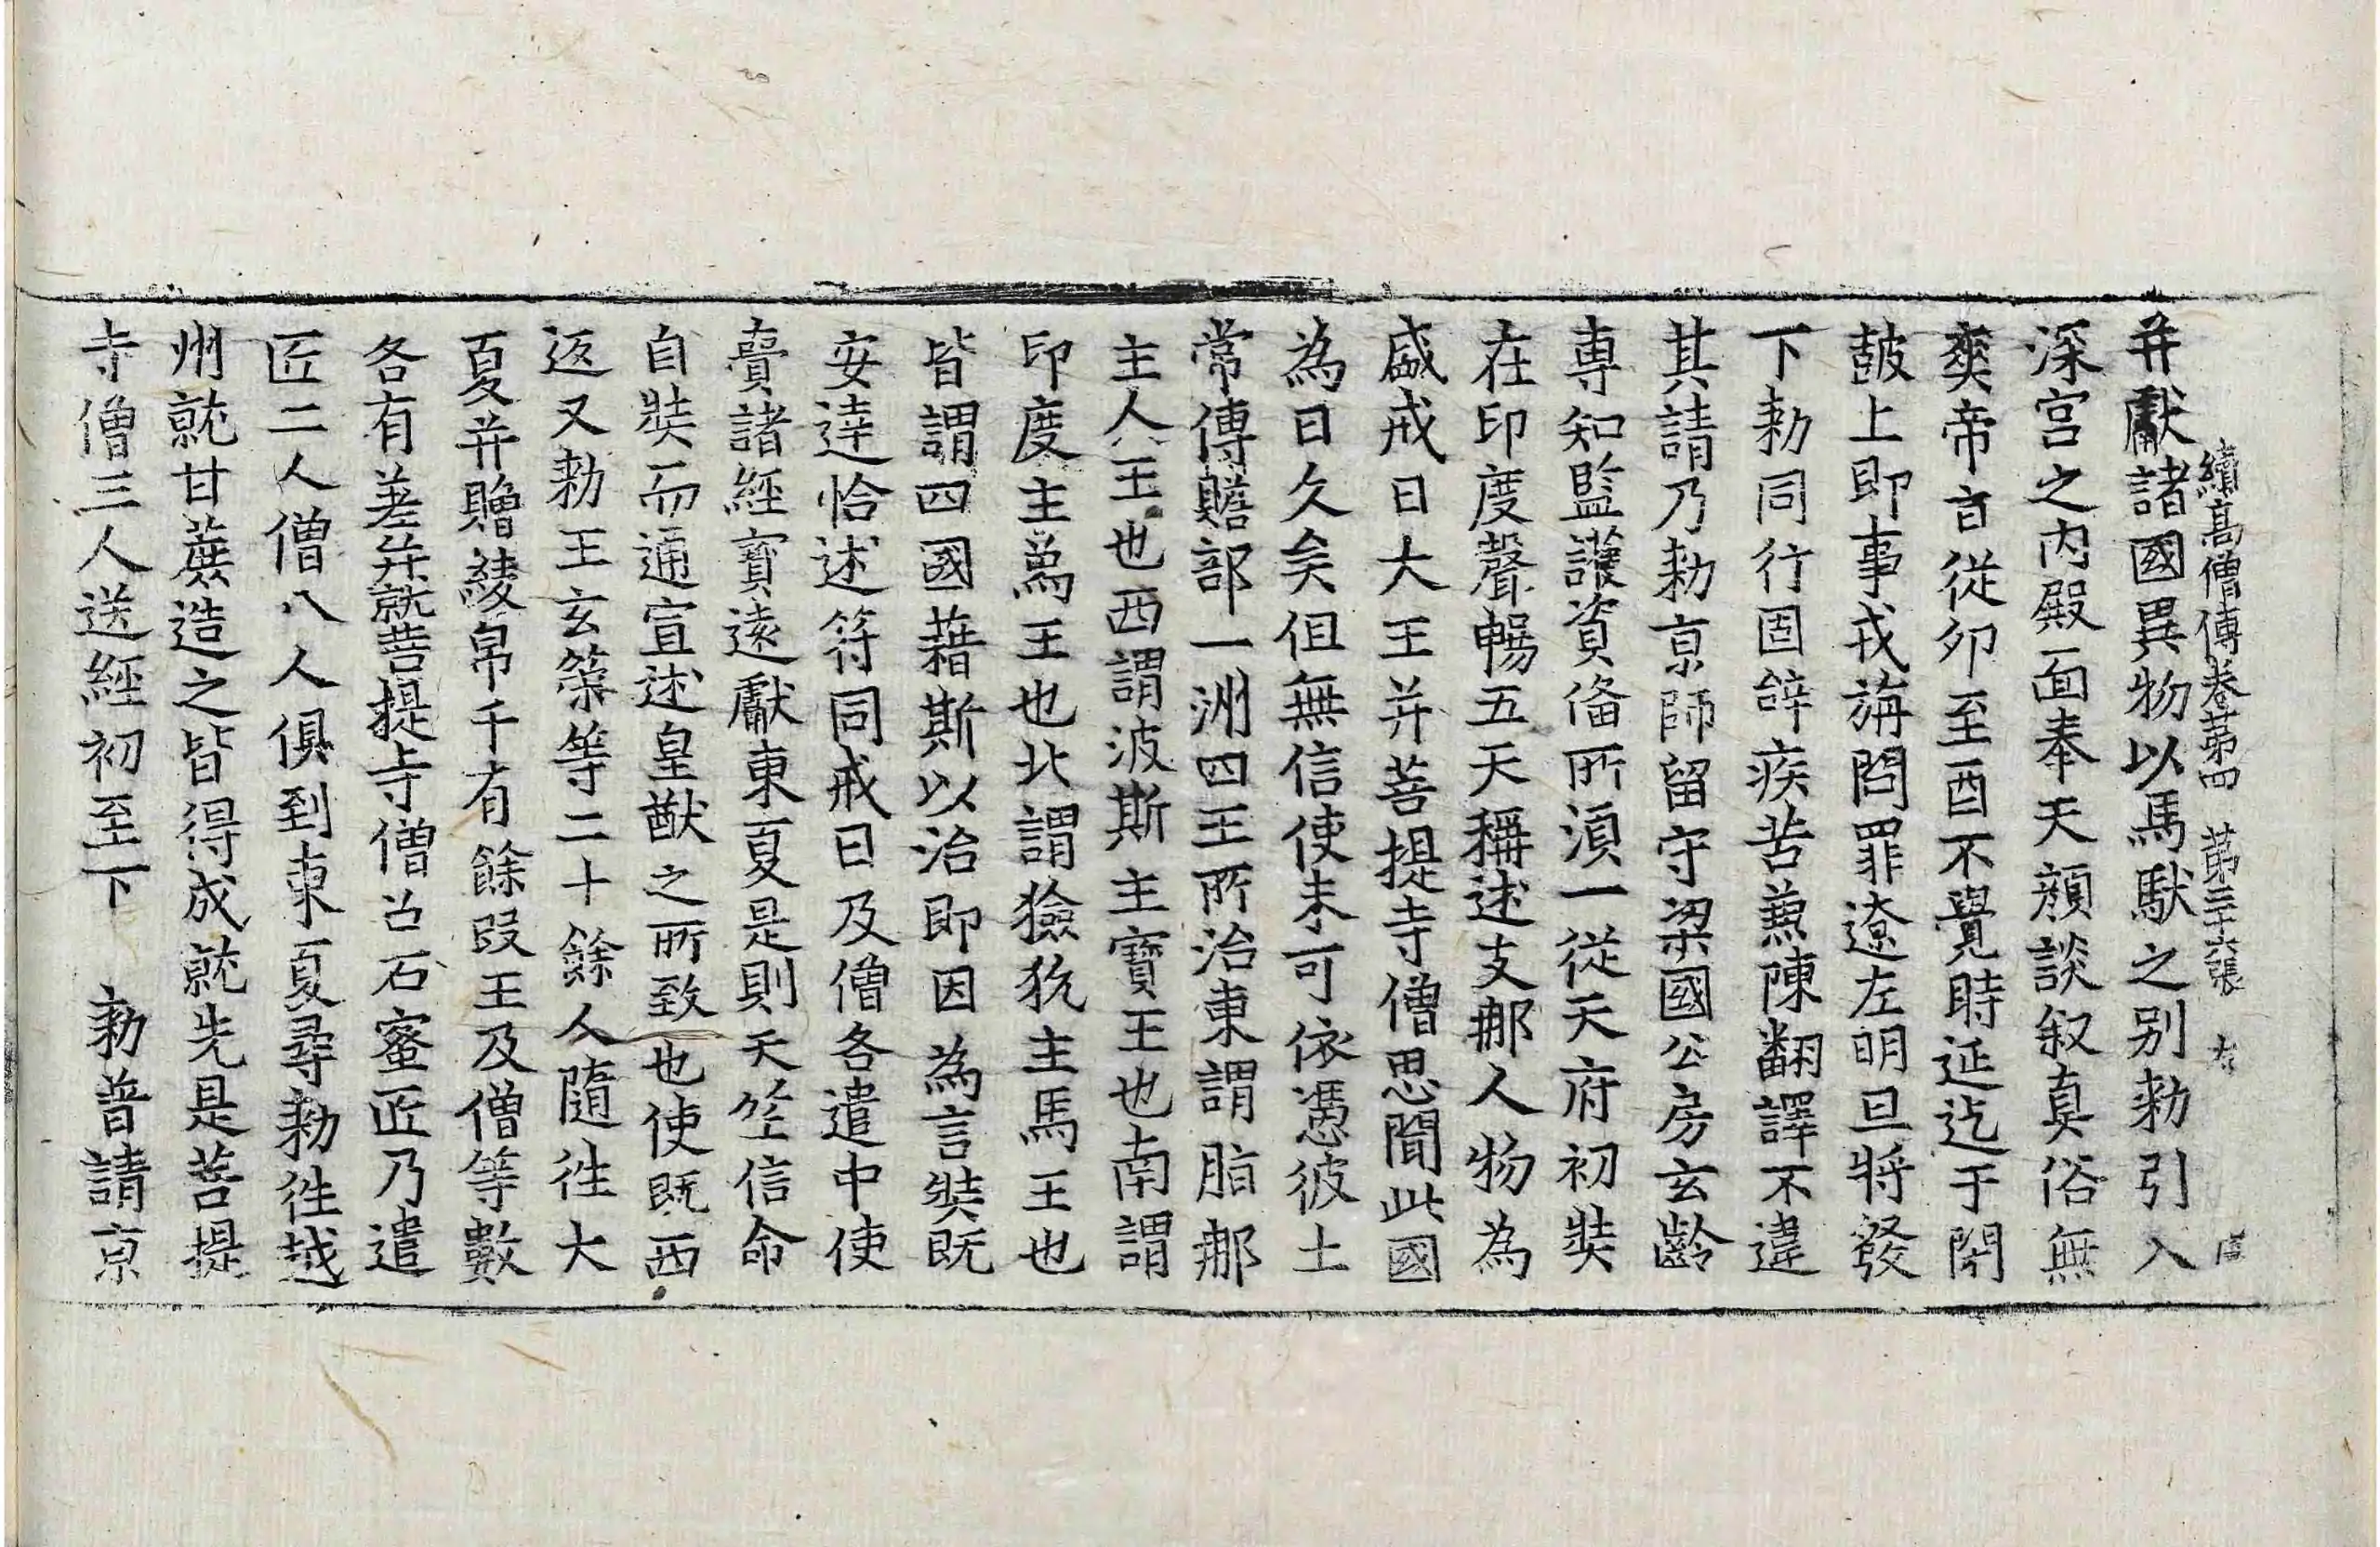 續高僧傳卷苐四 苐三十六張 左
并獻諸國異物以馬馱之别勑引入
深宮之内殿面奉天顔談叙真俗無
爽帝旨從卯至酉不覺時延迄于閇
皷上即事戎旃問罪遼左明旦將發
下勑同行固辝疾苦兼陳翻譯不違
其請乃勑京師留守梁國公房玄齡
専知監護資俻所湏一從天府初奘
在印度聲暢五天稱述支那人物為
盛戒日大王并菩提寺僧思聞此國
為日久矣但無信使未可依憑彼土
常傳贍部一洲四王所治東謂脂那
主人王也西謂波斯主寶王也南謂
印度主爲王也北謂獫狁主馬王也
皆謂四國藉斯以治即因為言奘既
安達恰述符同戒日及僧各遣中使
賷諸經寶遠獻東夏是則天竺信命
自奘而通宣述皇猷之所致也使既西
返又勑王玄策等二十餘人隨往大
夏并贈綾帛千有餘段王及僧等數
各有差并就菩提寺僧召石蜜匠乃遣
匠二人僧八人俱到東夏尋勑往越
州就甘蔗造之皆得成就先是菩提
寺僧三人送經初至下 勑普請京